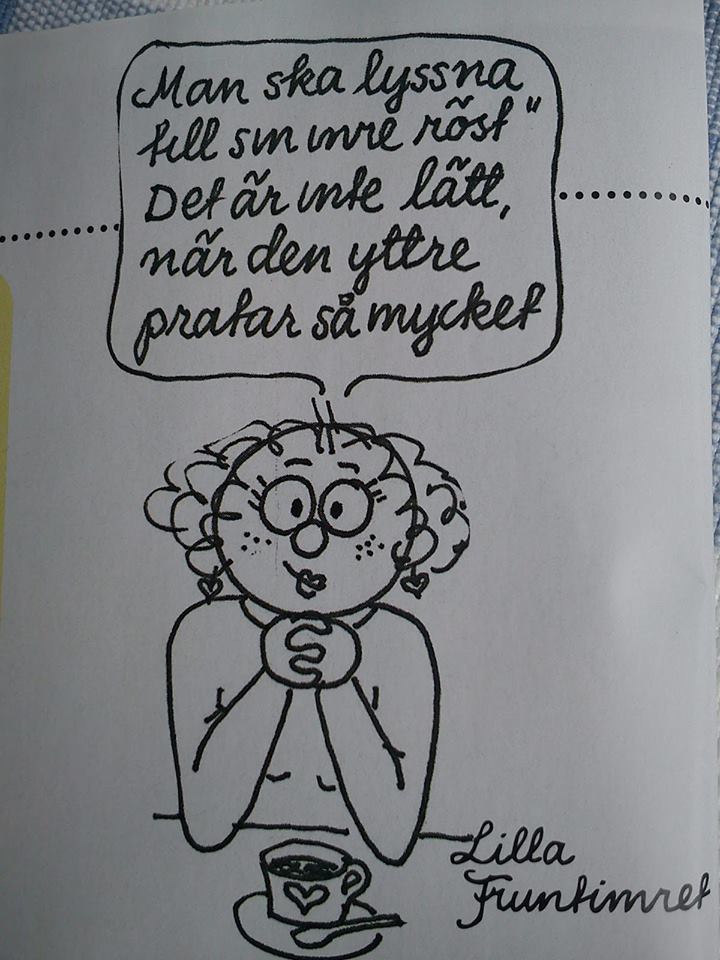 Man ska lyssna
till sin inre röst"
Det är inte lätt,
när den yttre
pratar så mycket
Lilla
Fruntimret